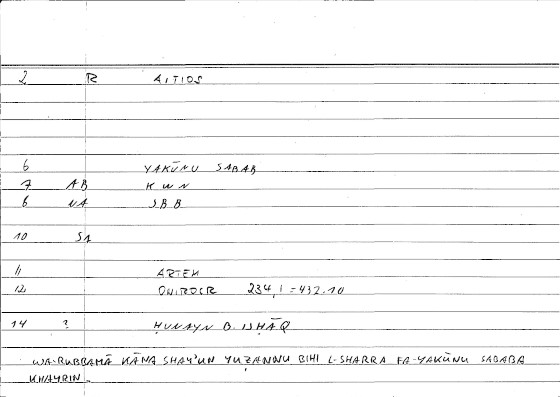 2 R AITIOS
6 YAKŪNU SABAB
7 AB KWN
6 NA SBB
10 SA
11 ARTEM
12 ONIROCR 234,1=432.10
14 ? ḤUNAYN B. ISḤĀQ
WA-RUBBAMĀ KĀNA SHAY'UN YUẒANNU BIHI L-SHARRA FA-YAKŪNU SABABA
KHAYRIN.